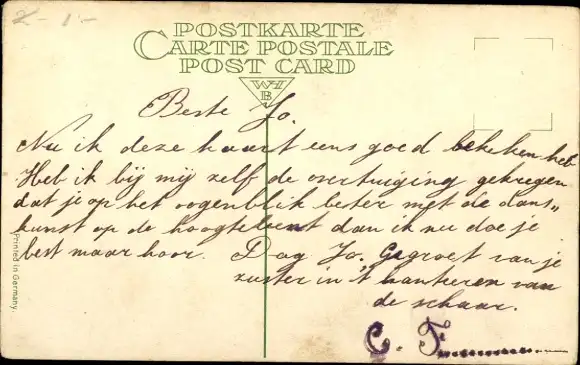 2-1-
POSTKARTE
CARTE POSTALE
POST CARD
W
B
Beste Jo.
Nu ik deze kaart eens goed bekeken heb
Heb ik bij mij zelf de overtuiging gekregen
dat je op het oogenblik beter met de dans„
kunst op de hoogte bent dan ik nu doe je
best maar hoor. Dag Jo. Gegroet van je
zuster in 't hanteren van
de schaar.
C. F
Printed in Germany.